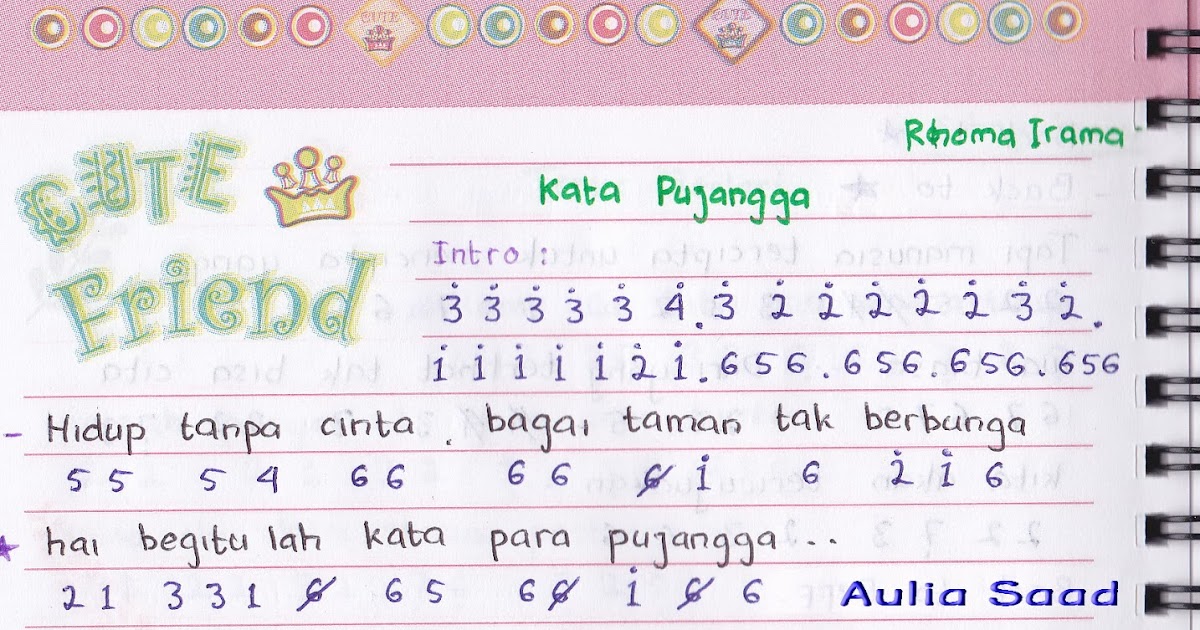 CUTE CUTE
Rhoma Irama
CUTE
Friend
Kata Pujangga
Intro :
3̇ 3̇ 3̇ 3̇ 3̇ 4̇ . 3̇ 2̇ 2̇ 2̇ 2̇ 2̇ 3̇ 2̇ .
1̇ 1̇ 1̇ 1̇ 1̇ 2̇ 1̇ . 6 5 6 . 6 5 6 . 6 5 6 . 6 5 6
- Hidup tanpa cinta , bagai taman tak berbunga
5 5 5 4 6 6 6 6 6̸ 1̇ 6 2̇ 1̇ 6
★ hai begitu lah kata para pujangga . . .
2 1 3 3 1 6̸ 6 5 6 6̸ 1̇ 6̸ 6
Aulia Saad